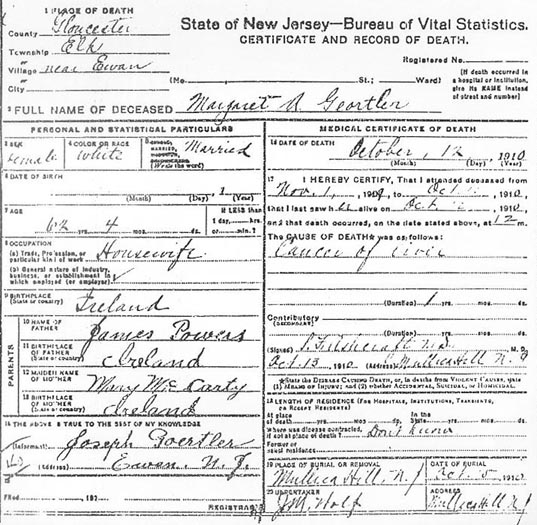 1 PLACE OF DEATH
County Gloucester
Township Elk
Village near Ewan
City
State of New Jersey—Bureau of Vital Statistics.
CERTIFICATE AND RECORD OF DEATH.
Registered No.
(No. St.; Ward)
(If death occurred in a hospital or institution, give its NAME instead of street and number)
2 FULL NAME OF DECEASED Margaret A Geortler
PERSONAL AND STATISTICAL PARTICULARS
3 SEX female
4 COLOR OR RACE White
5 MARRIED, (Write the word) Married
6 DATE OF BIRTH
1
(Month) (Day) (Year)
7 AGE
62 yrs. 4 mos. ds.
If LESS than 1 day, hrs. or min.?
8 OCCUPATION
(a) Trade, Profession, or particular kind of work Housewife
(b) General nature of industry, business, or establishment in which employed (or employer)
9 BIRTHPLACE (State or country) Ireland
PARENTS
10 NAME OF FATHER James Powers
11 BIRTHPLACE OF FATHER (State or country) Ireland
12 MAIDEN NAME OF MOTHER Mary McCarty
13 BIRTHPLACE OF MOTHER (State or country) Ireland
14 THE ABOVE IS TRUE TO THE BEST OF MY KNOWLEDGE
(Informant) Joseph Goertler
(Address) Ewan, N. J.
15
Filed 191
REGISTRAR
MEDICAL CERTIFICATE OF DEATH
16 DATE OF DEATH
October, 12, 1910
(Month) (Day) (Year)
17 I HEREBY CERTIFY, That I attended deceased from
Nov. 1, 1909 to Oct. 1910,
that I last saw her alive on Oct. 1910,
and that death occurred, on the date stated above, at 12 m.
The CAUSE OF DEATH* was as follows:
Cancer of
(Duration) 1 yrs. mos. ds.
Contributory
(SECONDARY)
(Duration) yrs. mos. ds.
(Signed) M. D.
Oct. 13, 1910 Mullica Hill N. J
*State the DISEASE CAUSING DEATH, or, in deaths from VIOLENT CAUSES, state (1) MEANS OF INJURY; and (2) whether ACCIDENTAL, SUICIDAL, or HOMICIDAL.
18 LENGTH OF RESIDENCE (FOR HOSPITALS, INSTITUTIONS, TRANSIENTS, OR RECENT RESIDENTS)
At place of death yrs. mos. ds. In the State yrs. mos. ds.
Where was disease contracted, if not at place of death? Don't know
Former or usual residence
19 PLACE OF BURIAL OR REMOVAL Mullica Hill, N. J
DATE OF BURIAL Oct. 1910
20 UNDERTAKER Wolf
ADDRESS Mullica Hill, N J